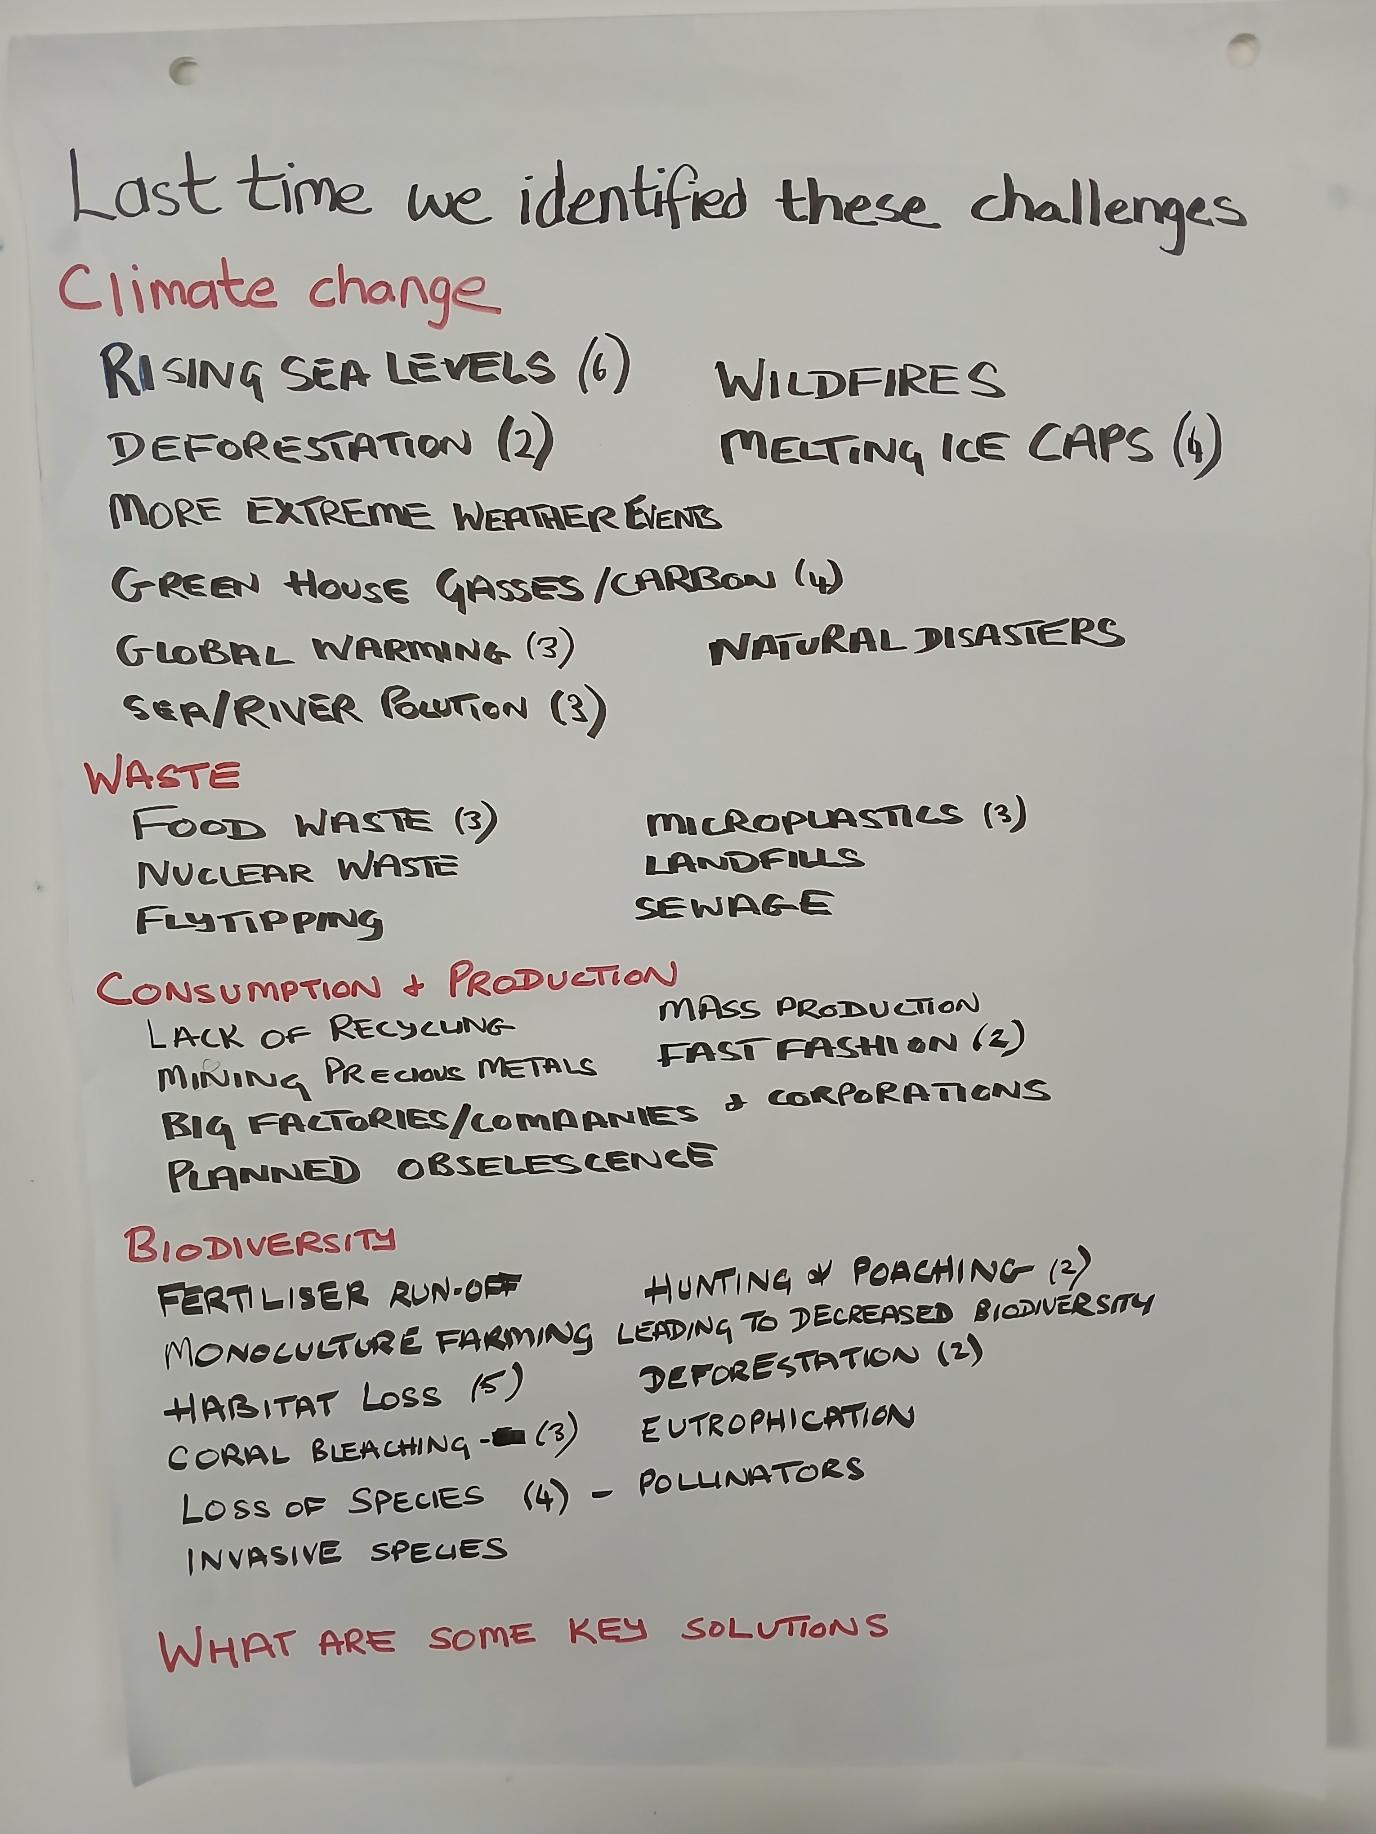 Last time we identified these challenges
Climate change
RISING SEA LEVELS (6) WILDFIRES
DEFORESTATION (2) MELTING ICE CAPS (4)
MORE EXTREME WEATHER EVENTS
GREEN HOUSE GASSES/CARBON (4)
GLOBAL WARMING (3) NATURAL DISASTERS
SEA/RIVER POLUTION (3)
WASTE
FOOD WASTE (3) MICROPLASTICS (3)
NUCLEAR WASTE LANDFILLS
FLYTIPPING SEWAGE
CONSUMPTION & PRODUCTION
LACK OF RECYCLING MASS PRODUCTION
MINING PRECIOUS METALS FAST FASHION (2)
BIG FACTORIES/COMPANIES & CORPORATIONS
PLANNED OBSELESCENCE
BIODIVERSITY
FERTILISER RUN-OFF HUNTING & POACHING (2)
MONOCULTURE FARMING LEADING TO DECREASED BIODIVERSITY
HABITAT LOSS (5) DEFORESTATION (2)
CORAL BLEACHING - (3) EUTROPHICATION
LOSS OF SPECIES (4) - POLLINATORS
INVASIVE SPECIES
WHAT ARE SOME KEY SOLUTIONS